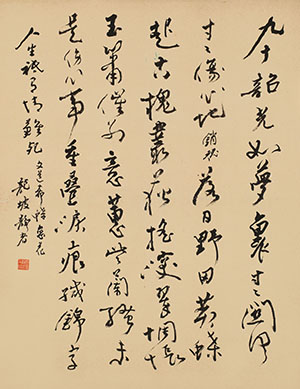 九十韶光如夢裏寸寸關河
寸寸傷心地銷魂落日野田黃蝶
起古槐叢荻搖深翠惆悵
玉簫催別意蕙些蘭騷未
是傷心事重疊淚痕緘錦字
人生祗有情難死 文道希蝶戀花
龍坡靜者